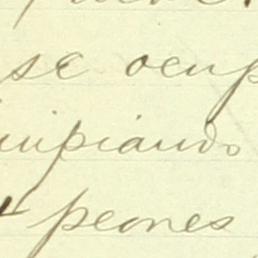 se ocup
impiando
4 peones